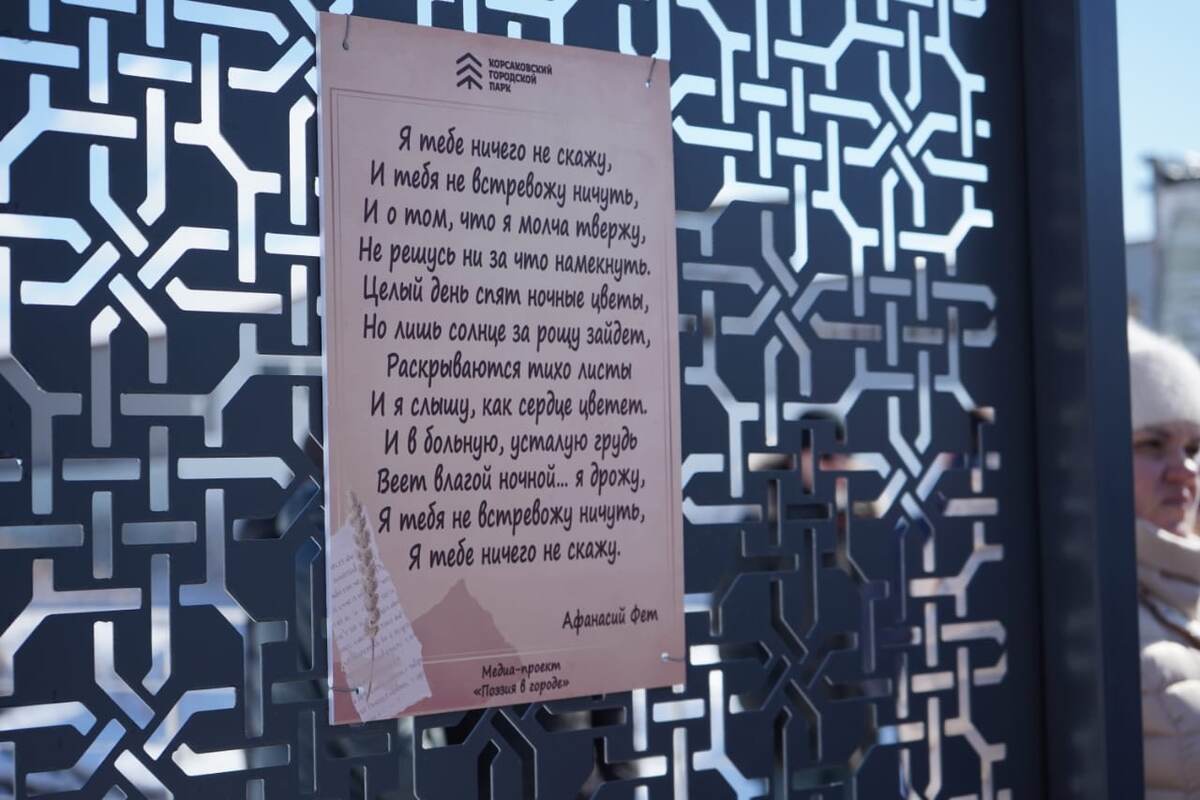 КОРСАКОВСКИЙ
ГОРОДСКОЙ
ПАРК
Я тебе ничего не скажу,
И тебя не встревожу ничуть,
И о том, что я молча твержу,
Не решусь ни за что намекнуть.
Целый день спят ночные цветы,
Но лишь солнце за рощу зайдет,
Раскрываются тихо листы
И я слышу, как сердце цветет.
И в больную, усталую грудь
Веет влагой ночной... я дрожу,
Я тебя не встревожу ничуть,
Я тебе ничего не скажу.
Афанасий Фет
Медиа-проект
«Поэзия в городе»